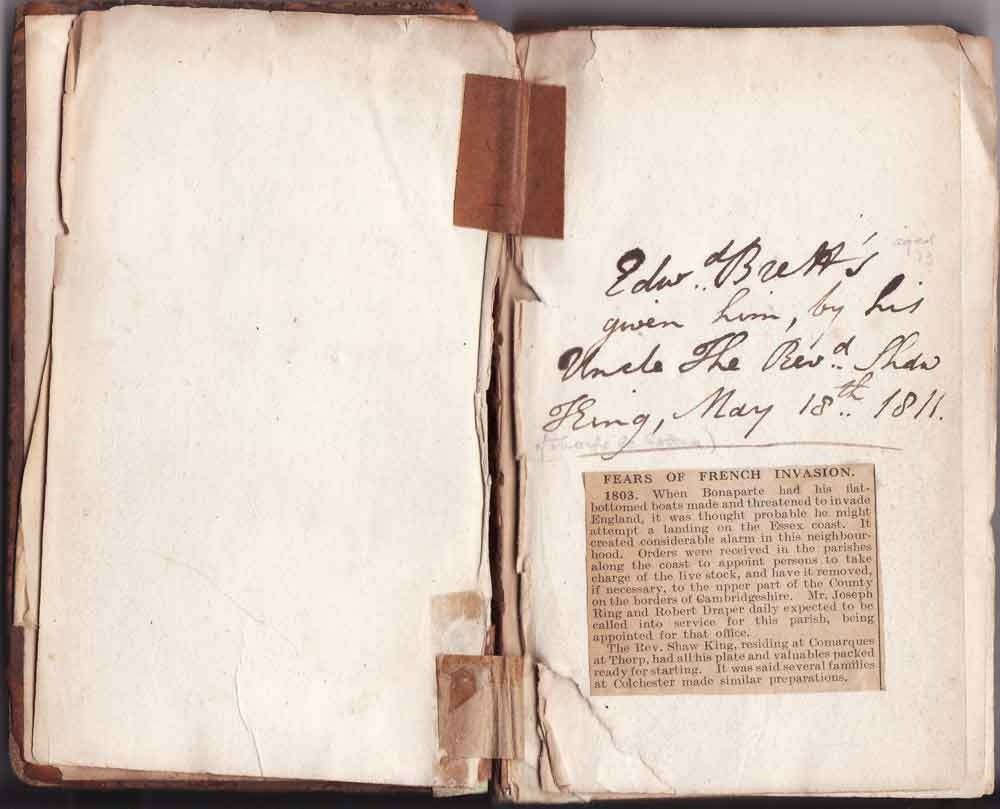 aged
13
Edwd. Brett's
given him, by his
Uncle The Revd. Shaw
King, May 18th. 1811.
FEARS OF FRENCH INVASION.
1803. When Bonaparte had his flat-
bottomed boats made and threatened to invade
England, it was thought probable he might
attempt a landing on the Essex coast. It
created considerable alarm in this neighbour-
hood. Orders were received in the parishes
along the coast to appoint persons to take
charge of the live stock, and have it removed,
if necessary, to the upper part of the County
on the borders of Cambridgeshire. Mr. Joseph
Ring and Robert Draper daily expected to be
called into service for this parish, being
appointed for that office.
The Rev. Shaw King, residing at Comarques
at Thorp, had all his plate and valuables packed
ready for starting. It was said several families
at Colchester made similar preparations.